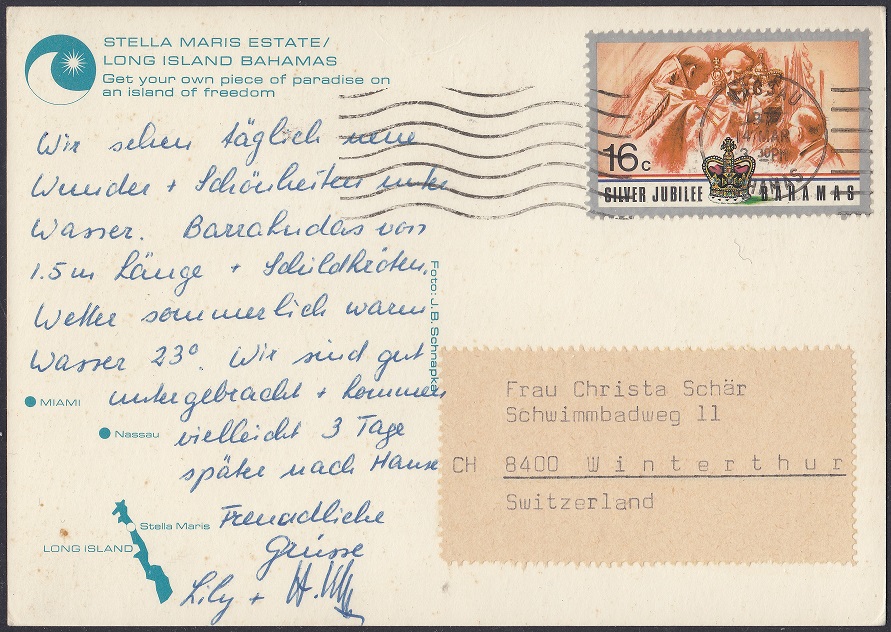 STELLA MARIS ESTATE/
LONG ISLAND BAHAMAS
Get your own piece of paradise on
an island of freedom
Wir sehen täglich neue
Wunder + Schönheiten unter
Wasser. Barrakudas von
1.5 m Länge + Schildkröten.
Wetter sommerlich warm
Wasser 23°. Wir sind gut
untergebracht + kommen
vielleicht 3 Tage
später nach Hause
Freundliche
Grüsse
Lily +
MIAMI
Nassau
Stella Maris
LONG ISLAND
Foto: J.B. Schnapka
16c
SILVER JUBILEE BAHAMAS
NASSAU
14 JAN
BAHAMAS
Frau Christa Schär
Schwimmbadweg 11
CH 8400 Winterthur
Switzerland